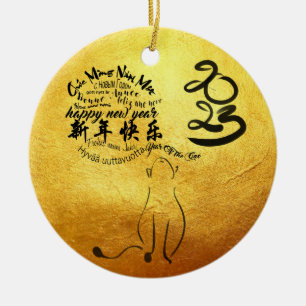 Chúc Mừng Năm Mới
с Новым Годом
bonne année
feliz año nuevo
happy new year
新年快乐
Hyvää uuttavuotta
Year Of The Cat
2023